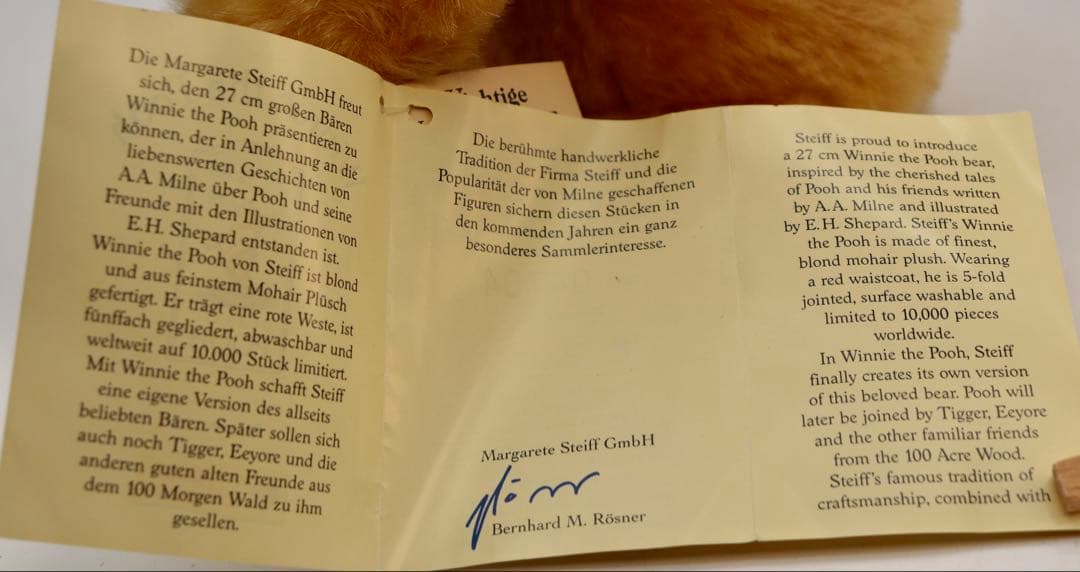 Die Margarete Steiff GmbH freut
sich, den 27 cm großen Bären
Winnie the Pooh präsentieren zu
können, der in Anlehnung an die
liebenswerten Geschichten von
A.A. Milne über Pooh und seine
Freunde mit den Illustrationen von
E.H. Shepard entstanden ist.
Winnie the Pooh von Steiff ist blond
und aus feinstem Mohair Plüsch
gefertigt. Er trägt eine rote Weste, ist
fünffach gegliedert, abwaschbar und
weltweit auf 10.000 Stück limitiert.
Mit Winnie the Pooh schafft Steiff
eine eigene Version des allseits
beliebten Bären. Später sollen sich
auch noch Tigger, Eeyore und die
anderen guten alten Freunde aus
dem 100 Morgen Wald zu ihm
gesellen.
Die berühmte handwerkliche
Tradition der Firma Steiff und die
Popularität der von Milne geschaffenen
Figuren sichern diesen Stücken in
den kommenden Jahren ein ganz
besonderes Sammlerinteresse.
Margarete Steiff GmbH
Bernhard M. Rösner
Steiff is proud to introduce
a 27 cm Winnie the Pooh bear,
inspired by the cherished tales
of Pooh and his friends written
by A.A. Milne and illustrated
by E.H. Shepard. Steiff's Winnie
the Pooh is made of finest,
blond mohair plush. Wearing
a red waistcoat, he is 5-fold
jointed, surface washable and
limited to 10,000 pieces
worldwide.
In Winnie the Pooh, Steiff
finally creates its own version
of this beloved bear. Pooh will
later be joined by Tigger, Eeyore
and the other familiar friends
from the 100 Acre Wood.
Steiff's famous tradition of
craftsmanship, combined with